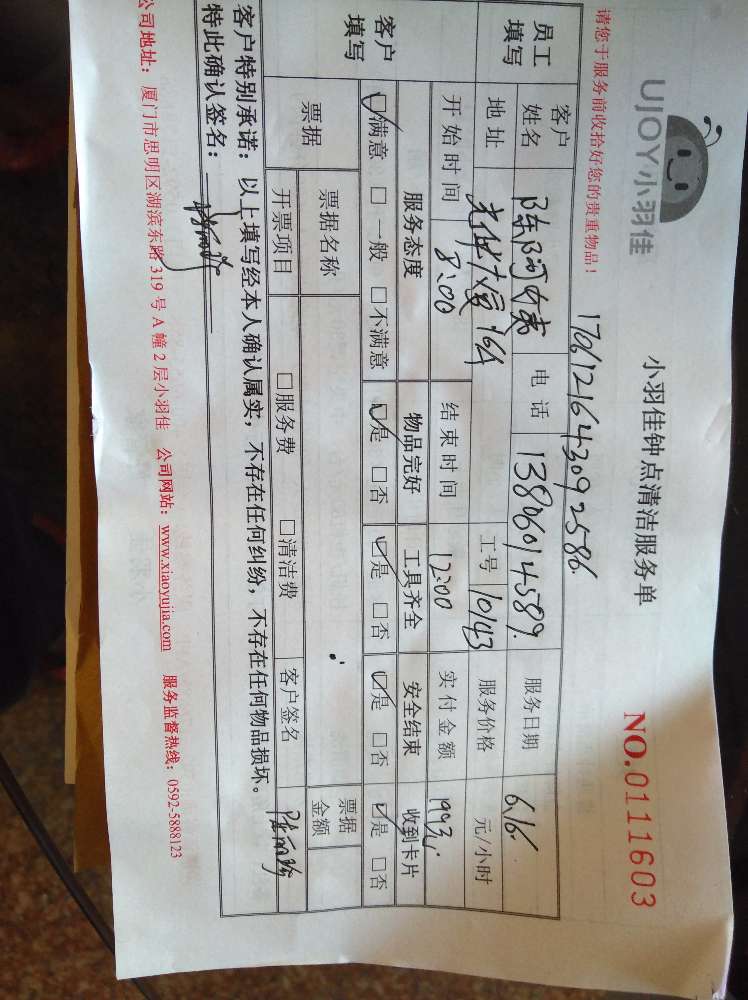 UJOY小羽佳
小羽佳钟点清洁服务单
NO.0111603
请您于服务前收拾好您的贵重物品!
1706121643092586
员工填写 客户姓名 陈阿 电话 13806014589 服务日期 6.16
地址 光华大厦16A 工号 10143 服务价格 元/小时
开始时间 8:00 结束时间 12:00 实付金额
客户填写 服务态度 物品完好 工具齐全 安全结束 收到卡片
☑满意 □一般 □不满意 ☑是 □否 ☑是 □否 ☑是 □否 ☑是 □否
票据 票据名称 票据金额
开票项目 □服务费 □清洁费 客户签名
客户特别承诺：以上填写经本人确认属实，不存在任何纠纷，不存在任何物品损坏。
特此确认签名：
公司地址：厦门市思明区湖滨东路 319 号 A 幢 2 层小羽佳 公司网站：www.xiaoyujia.com 服务监督热线：0592-5888123